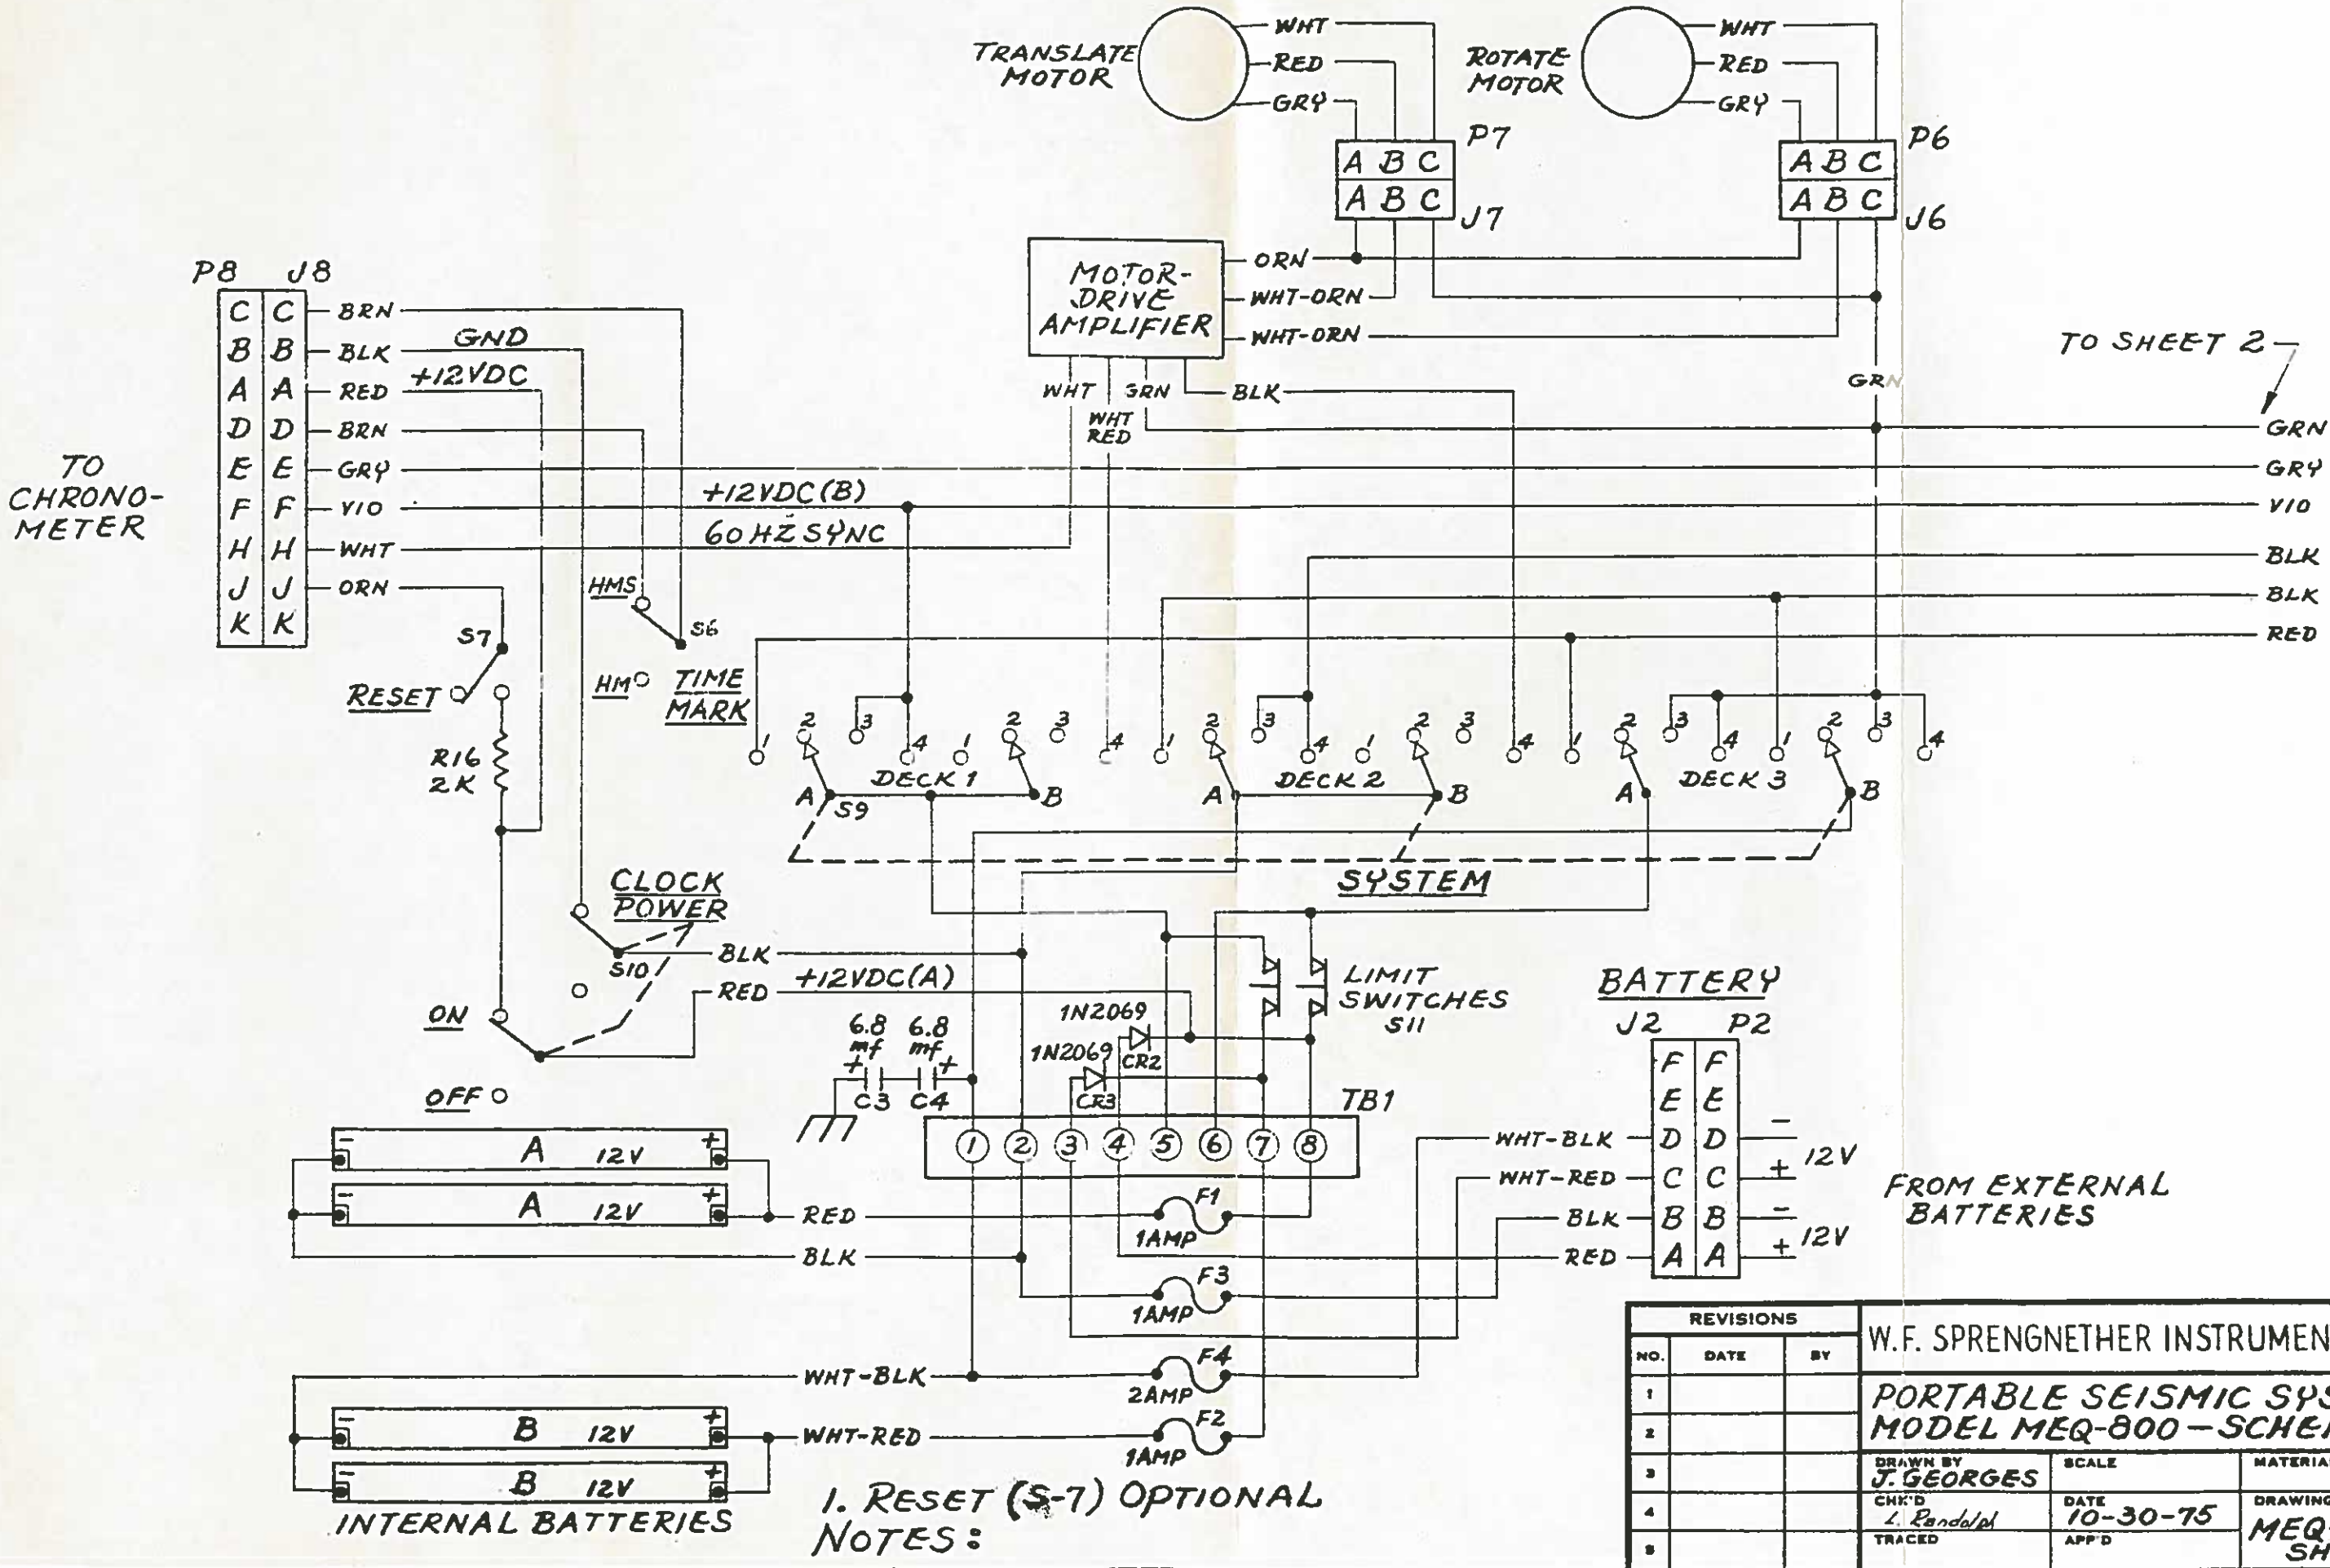 TRANSLATE
MOTOR
WHT
RED
GRY
ROTATE
MOTOR
WHT
RED
GRY
P7
A B C
A B C
J7
P6
A B C
A B C
J6
MOTOR-
DRIVE
AMPLIFIER
ORN
WHT-ORN
WHT-ORN
WHT
WHT
RED
GRN
BLK
GRN
TO SHEET 2
GRN
GRY
VIO
BLK
BLK
RED
P8 J8
C C BRN
B B BLK GND
A A RED +12VDC
D D BRN
E E GRY
F F VIO +12VDC(B)
H H WHT 60 HZ SYNC
J J ORN
K K
TO
CHRONO-
METER
S7
RESET
R16
2K
HMS
S6
HM
TIME
MARK
1 2 3 4 1 2 3 4 1 2 3 4 1 2 3 4 1 2 3 4 1 2 3 4
A S9 DECK 1 B
A DECK 2 B
A DECK 3 B
SYSTEM
CLOCK
POWER
S10
BLK
RED +12VDC(A)
ON
OFF
6.8
mf
+
C3
6.8
mf
+
C4
1N2069
CR2
1N2069
CR3
LIMIT
SWITCHES
S11
TB1
1 2 3 4 5 6 7 8
BATTERY
J2 P2
F F
E E
WHT-BLK D D -
WHT-RED C C + 12V
BLK B B -
RED A A + 12V
FROM EXTERNAL
BATTERIES
- A 12V +
- A 12V +
RED
BLK
F1
1AMP
F3
1AMP
F4
2AMP
F2
1AMP
WHT-BLK
- B 12V +
WHT-RED
- B 12V +
INTERNAL BATTERIES
1. RESET (S-7) OPTIONAL
NOTES:
REVISIONS
NO. DATE BY
1
2
3
4
5
W.F. SPRENGNETHER INSTRUMEN
PORTABLE SEISMIC SYS
MODEL MEQ-800-SCHE
DRAWN BY
J. GEORGES
SCALE
MATERIA
CHK'D
L. Randolph
DATE
10-30-75
DRAWING
MEQ
SH
TRACED
APP'D